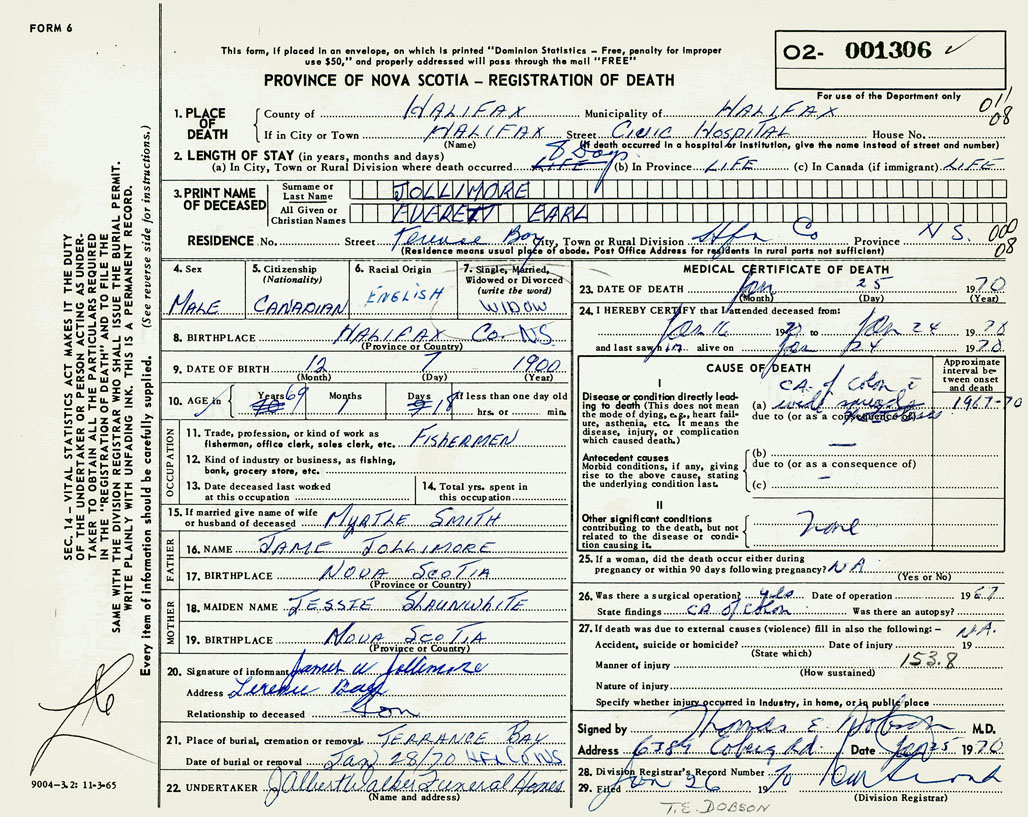 FORM 6
O2- 001306 ✓
This form, if placed in an envelope, on which is printed "Dominion Statistics - Free, penalty for improper
use $50," and properly addressed will pass through the mail "FREE"
PROVINCE OF NOVA SCOTIA - REGISTRATION OF DEATH
For use of the Department only
011
08
SEC. 14 - VITAL STATISTICS ACT MAKES IT THE DUTY
OF THE UNDERTAKER OR PERSON ACTING AS UNDER-
TAKER TO OBTAIN ALL THE PARTICULARS REQUIRED
IN THE "REGISTRATION OF DEATH" AND TO FILE THE
SAME WITH THE DIVISION REGISTRAR WHO SHALL ISSUE THE BURIAL PERMIT.
WRITE PLAINLY WITH UNFADING INK. THIS IS A PERMANENT RECORD.
Every item of information should be carefully supplied. (See reverse side for instructions.)
1. PLACE OF DEATH County of HALIFAX Municipality of HALIFAX
If in City or Town HALIFAX Street CIVIC HOSPITAL House No.
(Name) (If death occurred in a hospital or institution, give the name instead of street and number)
2. LENGTH OF STAY (in years, months and days) 8 Days
(a) In City, Town or Rural Division where death occurred LIFE (b) In Province LIFE (c) In Canada (if immigrant) LIFE
3. PRINT NAME OF DECEASED Surname or Last Name JOLLIMORE
All Given or Christian Names EVERETT EARL
RESIDENCE No. Street Terence Bay City, Town or Rural Division Hfx Co Province N S. 000
08
(Residence means usual place of abode. Post Office Address for residents in rural parts not sufficient)
4. Sex MALE
5. Citizenship (Nationality) CANADIAN
6. Racial Origin ENGLISH
7. Single, Married, Widowed or Divorced (write the word) WIDOW
8. BIRTHPLACE HALIFAX Co. N.S.
(Province or Country)
9. DATE OF BIRTH 12 7 1900
(Month) (Day) (Year)
10. AGE in Years 69 Months 1 Days 18 If less than one day old
hrs. or min.
OCCUPATION
11. Trade, profession, or kind of work as
fisherman, office clerk, sales clerk, etc. FISHERMEN
12. Kind of industry or business, as fishing,
bank, grocery store, etc.
13. Date deceased last worked
at this occupation
14. Total yrs. spent in
this occupation
15. If married give name of wife
or husband of deceased MYRTLE SMITH
FATHER
16. NAME JAME JOLLIMORE
17. BIRTHPLACE NOVA SCOTIA
(Province or Country)
MOTHER
18. MAIDEN NAME JESSIE SHAUNWHITE
19. BIRTHPLACE NOVA SCOTIA
(Province or Country)
20. Signature of informant James W Jollimore
Address Terence Bay
Relationship to deceased Son
21. Place of burial, cremation or removal TERRANCE BAY
Date of burial or removal Jan 28/70 HFX CO NS.
22. UNDERTAKER J Albert Walker Funeral Homes
(Name and address)
9004-3.2: 11-3-65
MEDICAL CERTIFICATE OF DEATH
23. DATE OF DEATH Jan 25 1970
(Month) (Day) (Year)
24. I HEREBY CERTIFY that I attended deceased from:
Jan 16 1970 to Jan 24 1970
and last saw him alive on Jan 24 1970
CAUSE OF DEATH
Approximate interval between onset and death
I
Disease or condition directly lead-
ing to death (This does not mean
the mode of dying, e.g., heart fail-
ure, asthenia, etc. It means the
disease, injury, or complication
which caused death.)
CA. of Colon c̄
(a) wide
due to (or as a consequence of)
1967-70
Antecedent causes
Morbid conditions, if any, giving
rise to the above cause, stating
the underlying condition last.
(b) —
due to (or as a consequence of)
(c) —
II
Other significant conditions
contributing to the death, but not
related to the disease or condi-
tion causing it.
None
25. If a woman, did the death occur either during
pregnancy or within 90 days following pregnancy? NA
(Yes or No)
26. Was there a surgical operation? yes Date of operation 1967
State findings CA of Colon Was there an autopsy?
27. If death was due to external causes (violence) fill in also the following: - N.A.
Accident, suicide or homicide? Date of injury 19
(State which)
Manner of injury 153.8
(How sustained)
Nature of injury
Specify whether injury occurred in Industry, in home, or in public place
Signed by Thomas E. Dobson M.D.
Address 6389 Coburg Rd. Date Jan 25 1970
28. Division Registrar's Record Number
29. Filed Jan 26 1970
(Division Registrar)
T.E. DOBSON